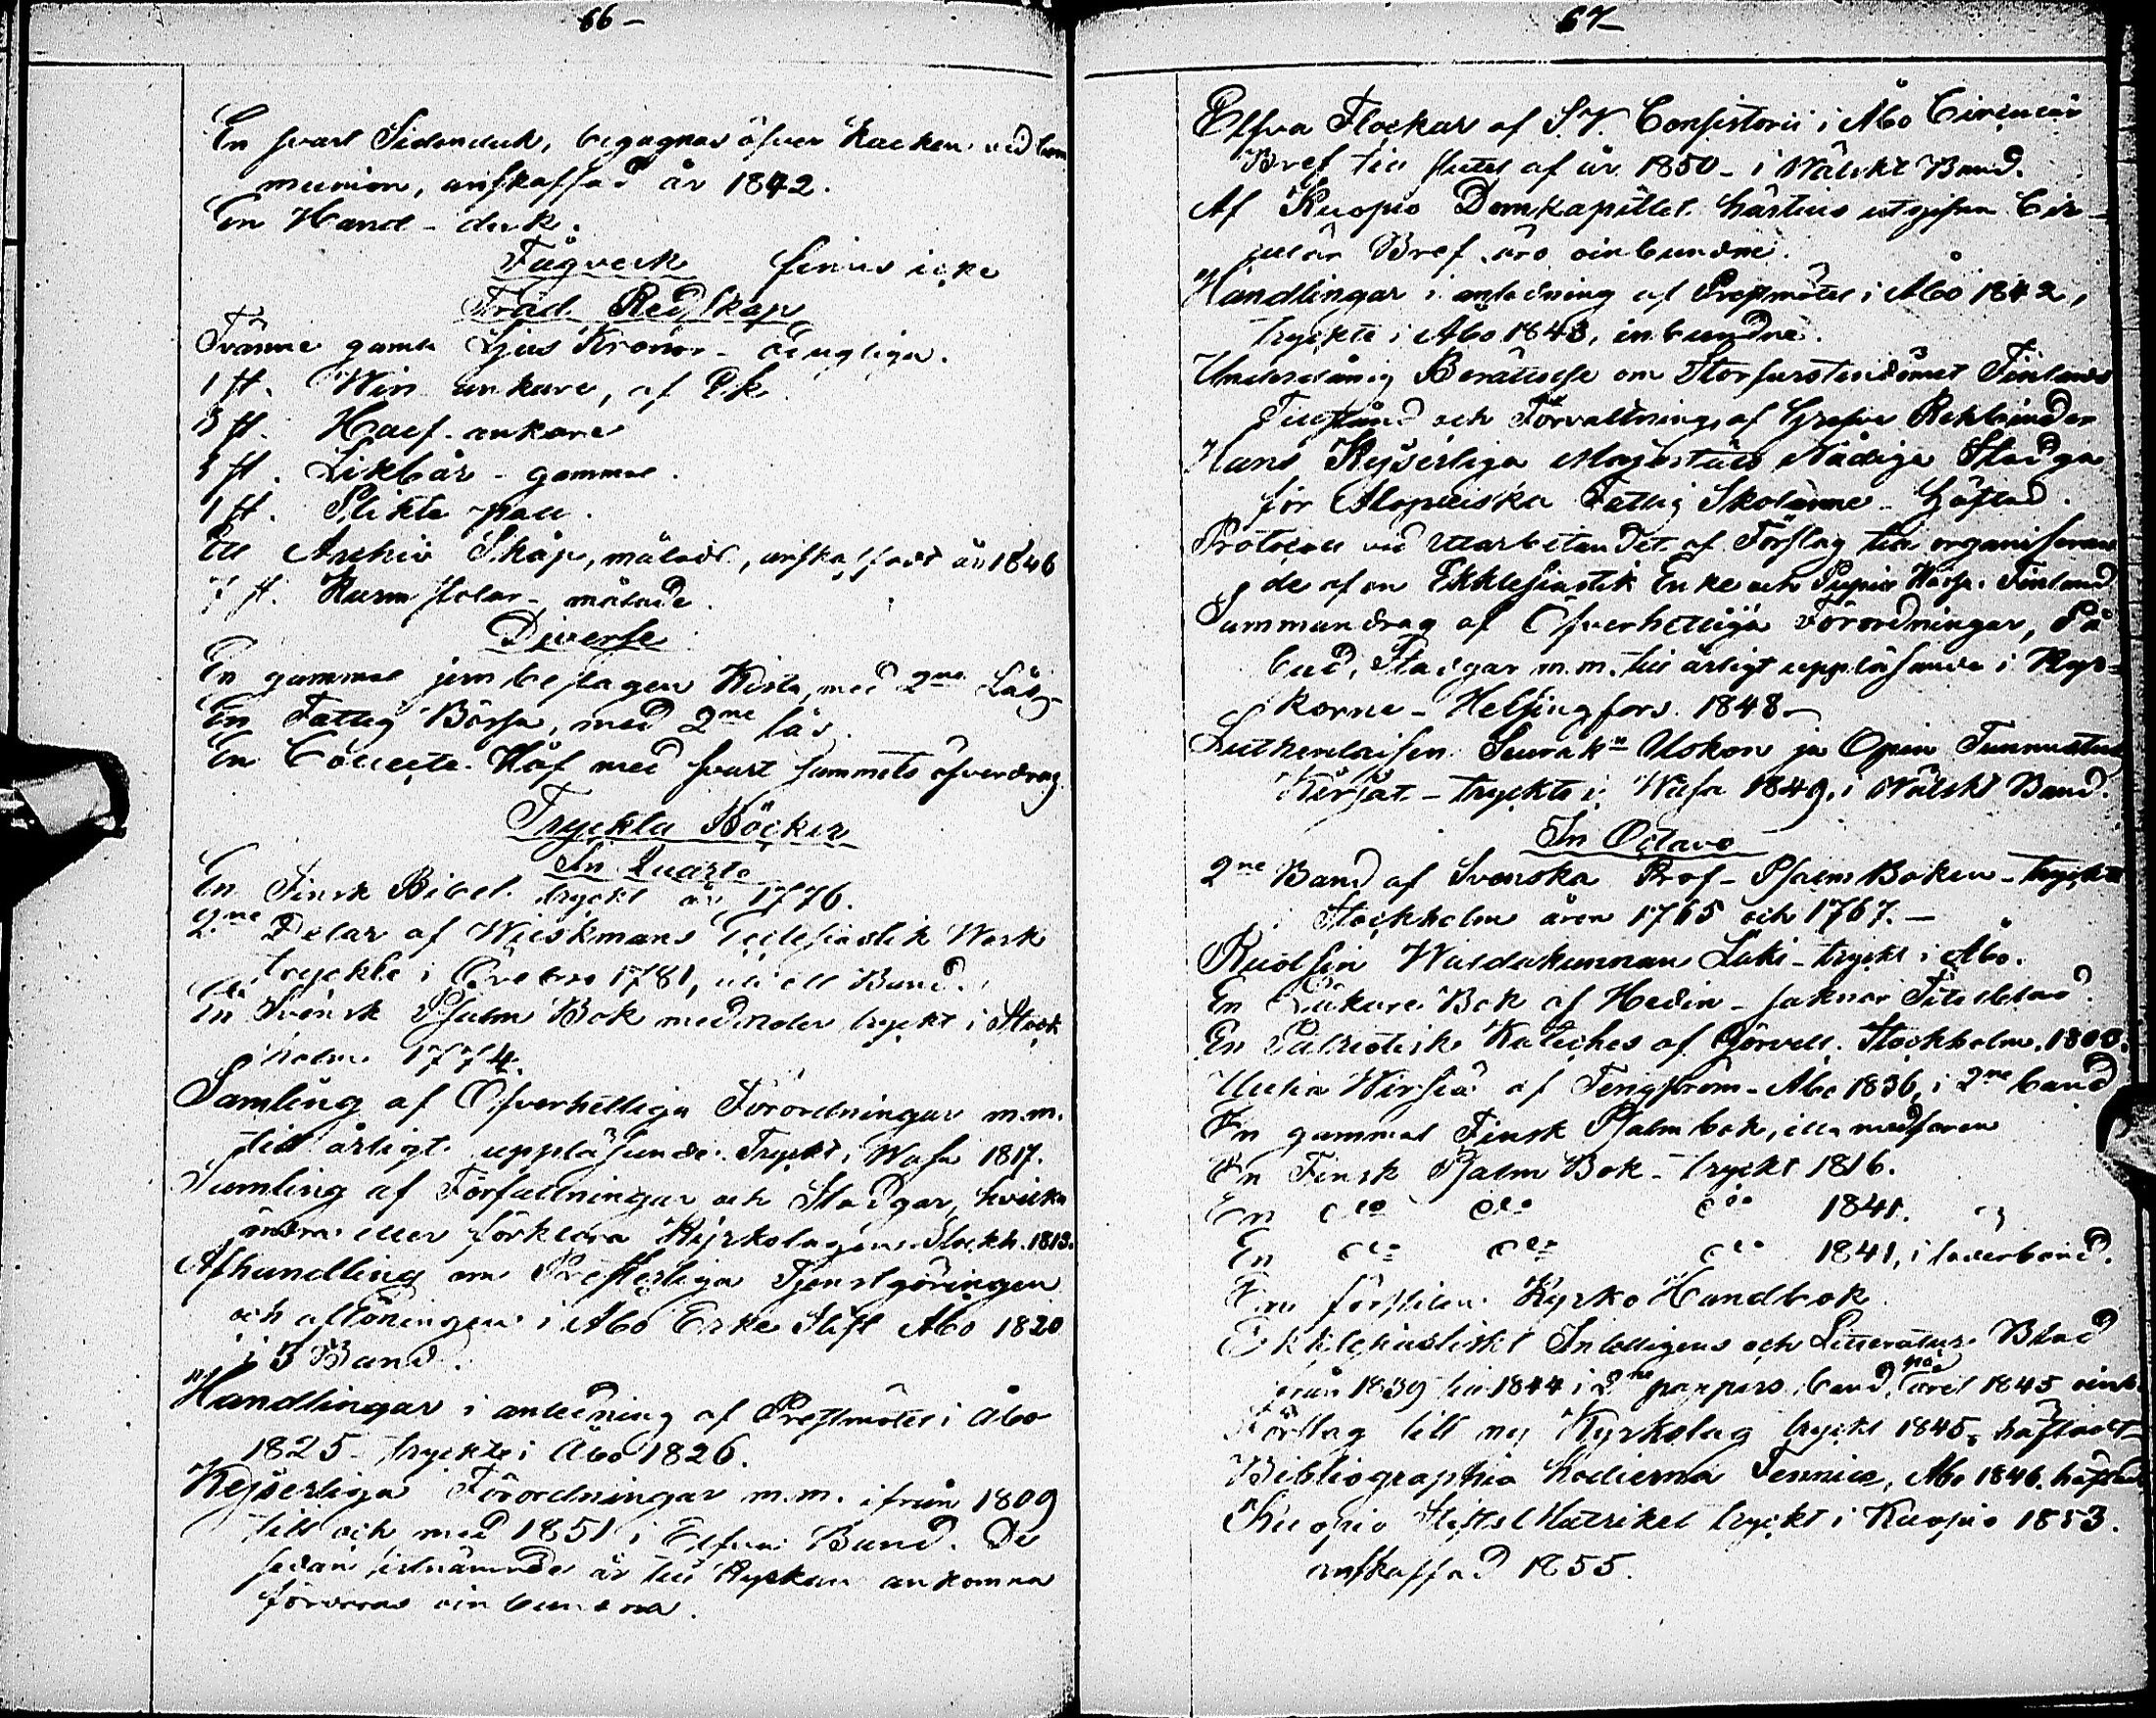 66 -
En svart Sidenduk, begagnas öfver Kalken vid Com
munion, anskaffad år 1842.
En Hand - duk.
Tågverk finns icke
Träd Redskap
Tvänne gamla Ljus Kronor - odugliga.
1 st. Win ankare, af Ek
3 st. Half - ankare
1 st. Likbår - gammal.
1 st. Plikta pall.
Ett Archiv Skåp, måladt, anskaffadt år 1846
7 st. Karm stolar - målade.
Diverse
En gammal jernbeslagen Kista, med 2ne Lås,
En Fattig Börssa, med 2ne lås.
En Collecte Håf med svart sammets öfverdrag
Tryckta Böcker
In Quarto
En Finsk Bibel tryckt år 1776.
2ne Delar af Wilskmans Ecclesiastik Werk
tryckte i Örebro 1781, uti ett Band.
En Svensk Psalm Bok med Noter tryckt i Stock
holm 1774.
Samling af Öfverhetliga Förordningar m.m.
till årligt uppläsande. Tryckt i Wasa 1817.
Samling af Författningar och Stadgar, hvilka
ändra eller förklara Kyrkolagen. Stockh. 1813.
Afhandling om Presterliga Tjenstgöringen
och aflöningen i Åbo Erke Stift Åbo 1820
i 3 Band.
Handlingar i anledning af Prestmötet i Åbo
1825 - tryckte i Åbo 1826.
Kejserliga Förordningar m.m. ifrån 1809
till och med 1851 i Elfva Band. De
sedan sistnämnde år till Kyrkan ankomna
förvaras oinbundna.
67
Elfva Flockar af S.V. Consistorii i Åbo Circulär
Bref till slutet af år 1850 - i Wälskt Band.
Af Kuopio Domkapitlet härtills utgifna Cir-
culär Bref äro oinbundne.
Handlingar i anledning af Prestmötet i Åbo 1842,
tryckte i Åbo 1843, inbundne.
Underdånig Berättelse om Storfurstendömet Finlands
Tillstånd och Förvaltning, af Grefve Rehbinder
Hans Kejserliga Majestäts Nådiga Stadga
för Alopæiska Fattig Skolorne - häftad.
Protocoll vid utarbetandet af Förslag till organiseran
de af en Ekklesiastik Enke och Pupill Kassa i Finland
Sammandrag af Öfverhetliga Förordningar, På
bud, Stadgar m.m. till årligt uppläsande i Kyr-
korna - Helsingfors 1848 -
Lutherilaisen Seurakn Uskon ja Opin Tunnustus
Kirjat - tryckte i Wasa 1849, i Wälskt Band.
In Octavo
2ne Band af Svenska Prof - Psalm Boken - tryckte
Stockholm åren 1765 och 1767. -
Ruotsin Waldakunnan Laki - tryckt i Åbo.
En Läkare Bok af Hedin - saknar Titelblad.
En Patriotisk Kateches af Gjörvell. Stockholm. 1800.
Uusia Wirsiä af Tengström - Åbo 1836, i 2ne band
En gammal Finsk Psalm bok, illa medfaren
En Finsk Psalm Bok - tryckt 1816.
En do do do 1841.
En do do do 1841, i läderband.
En Kyrko Handbok
Ekklesiastiskt Intelligens och Litteratur Blad
från 1839 till 1844 i 2ne pappers band, året 1845 oinb.
Förslag till ny Kyrkolag tryckt 1845, häftadt
Bibliographia hodierna Fennica, Åbo 1846. häftad
Kuopio Stifts Matrikel tryckt i Kuopio 1853.
anskaffad 1855.